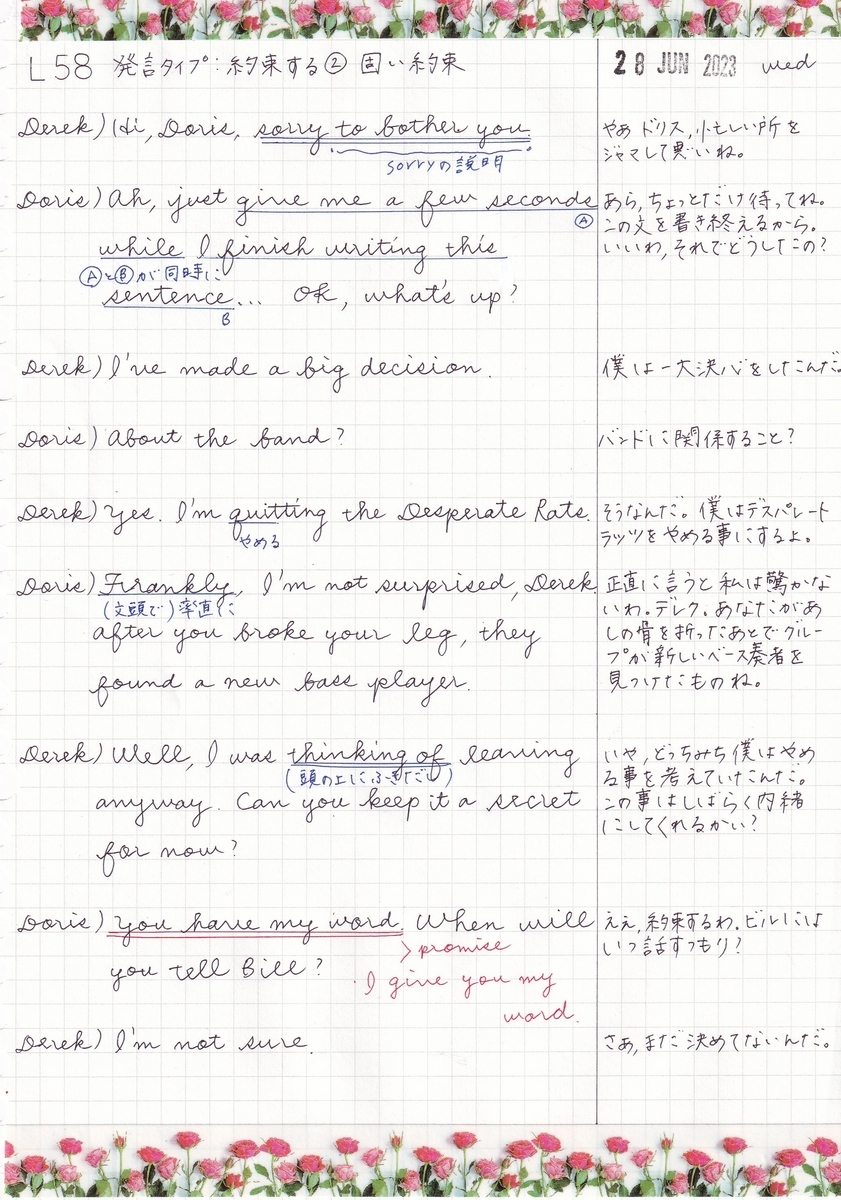 L58 発言タイプ:約束する② 固い約束
28 JUN 2023 wed
Derek) Hi, Doris, sorry to bother you.
sorryの説明
やあ ドリス, 忙しい所を
ジャマして悪いね。
Doris) Ah, just give me a few seconds
Ⓐ
while I finish writing this
ⒶとⒷが同時に
sentence... OK, what's up?
B
あら, ちょっとだけ待ってね。
この文を書き終えるから。
いいわ, それでどうしたの?
Derek) I've made a big decision.
僕は一大決心をしたんだ。
Doris) About the band?
バンドに関係すること?
Derek) Yes. I'm quitting the Desperate Rats.
やめる
そうなんだ。僕はデスパレート
ラッツをやめる事にするよ。
Doris) Frankly, I'm not surprised, Derek.
(文頭で)率直に
after you broke your leg, they
found a new bass player.
正直に言うと 私は驚かな
いわ。デレク。あなたがあ
しの骨を折ったあとでグルー
プが新しいベース奏者を
見つけたものね。
Derek) Well, I was thinking of leaving
(頭の上にふきだし)
anyway. Can you keep it a secret
for now?
いや, どっちみち僕はやめ
る事を考えていたんだ。
この事はしばらく内緒
にしてくれるかい?
Doris) You have my word. When will
> promise
you tell Bill?
・I give you my
word.
ええ, 約束するわ. ビルには
いつ話すつもり?
Derek) I'm not sure.
さあ, まだ決めてないんだ。